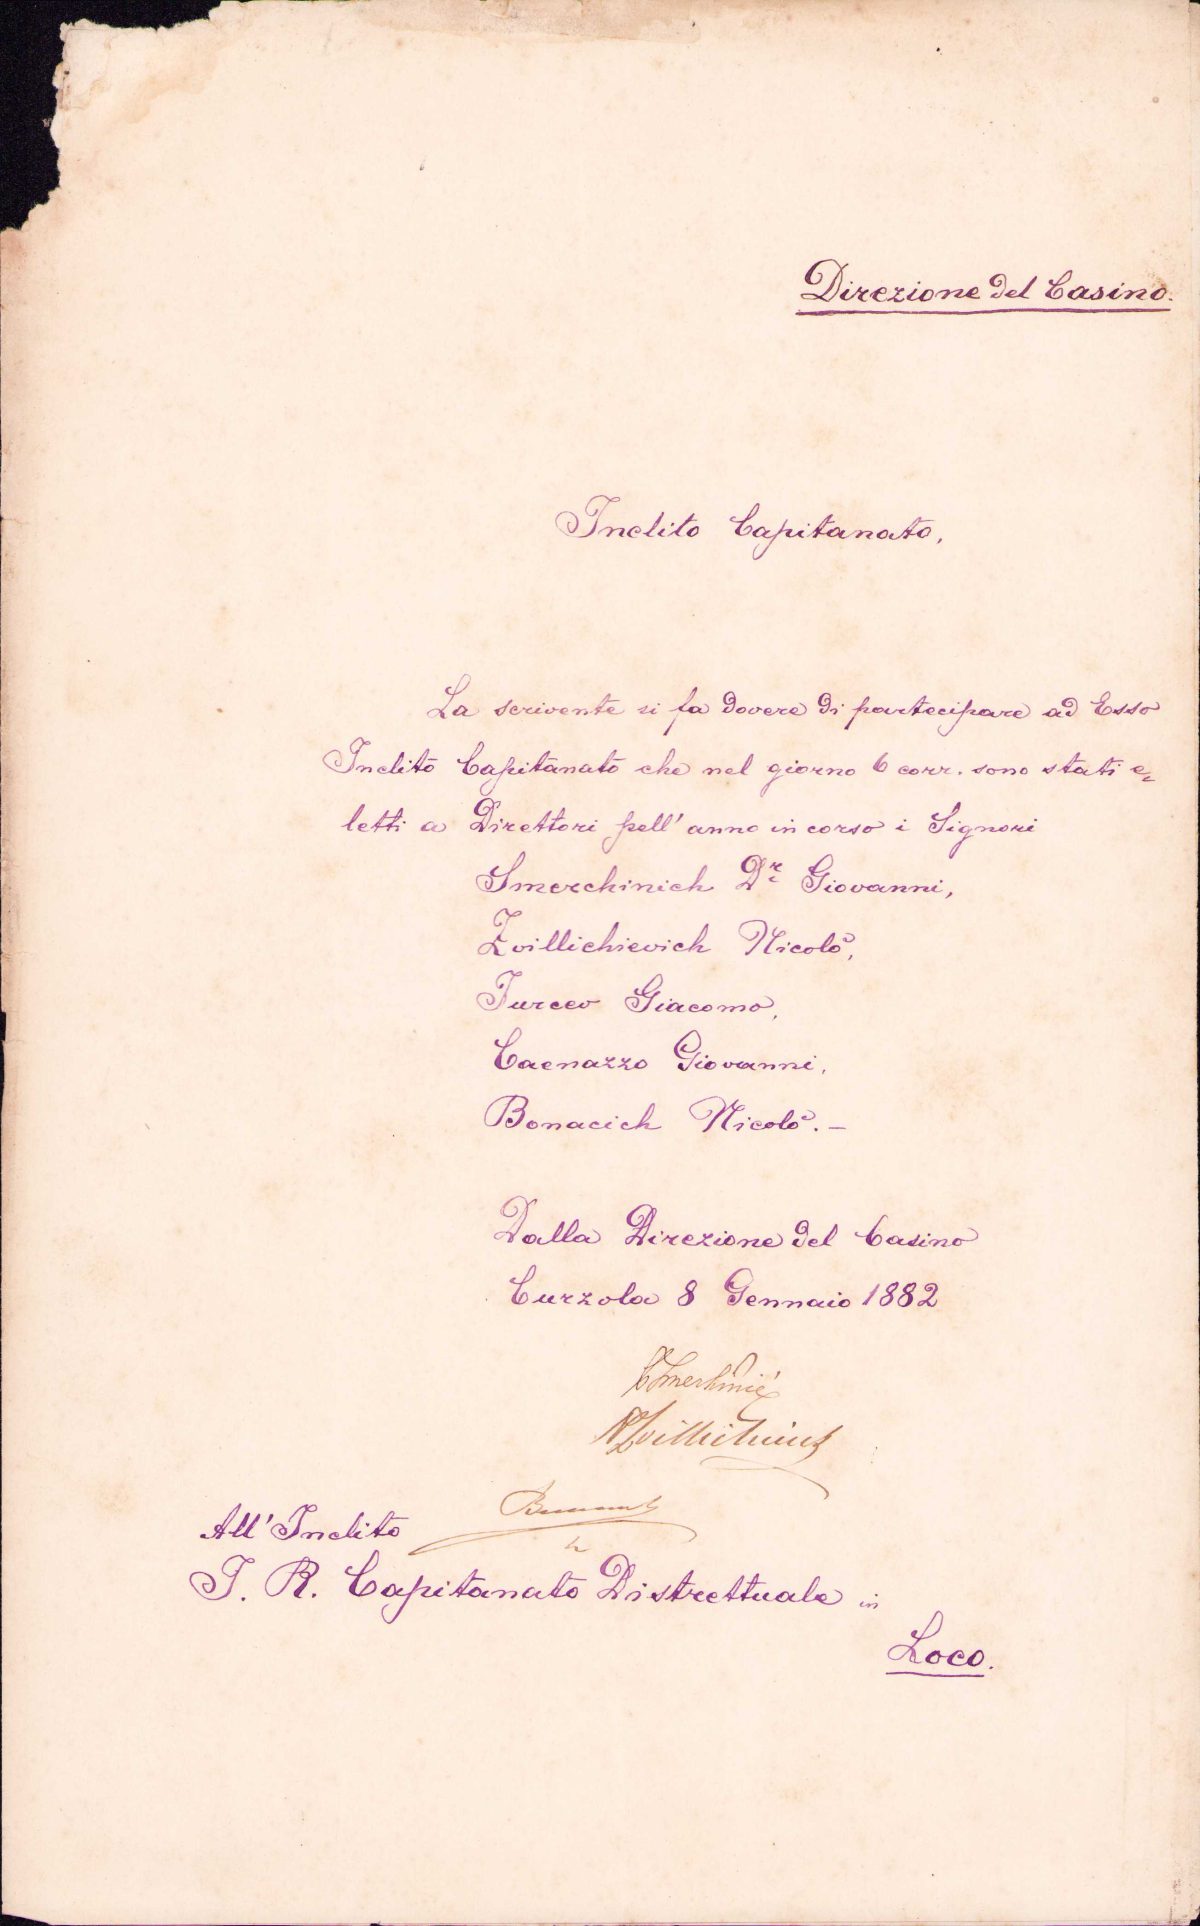 Direzione del Casino.
Inclito Capitanato,
La scrivente si fa dovere di partecipare ad Esso
Inclito Capitanato che nel giorno 6 corr. sono stati e=
letti a Direttori pell' anno in corso i Signori
Smerchinich Dr. Giovanni,
Zvillichievich Nicolò,
Jurcev Giacomo,
Caenazzo Giovanni,
Bonacich Nicolò. –
Dalla Direzione del Casino
Curzola 8 Gennaio 1882
All' Inclito
I. R. Capitanato Distrettuale in
Loco.